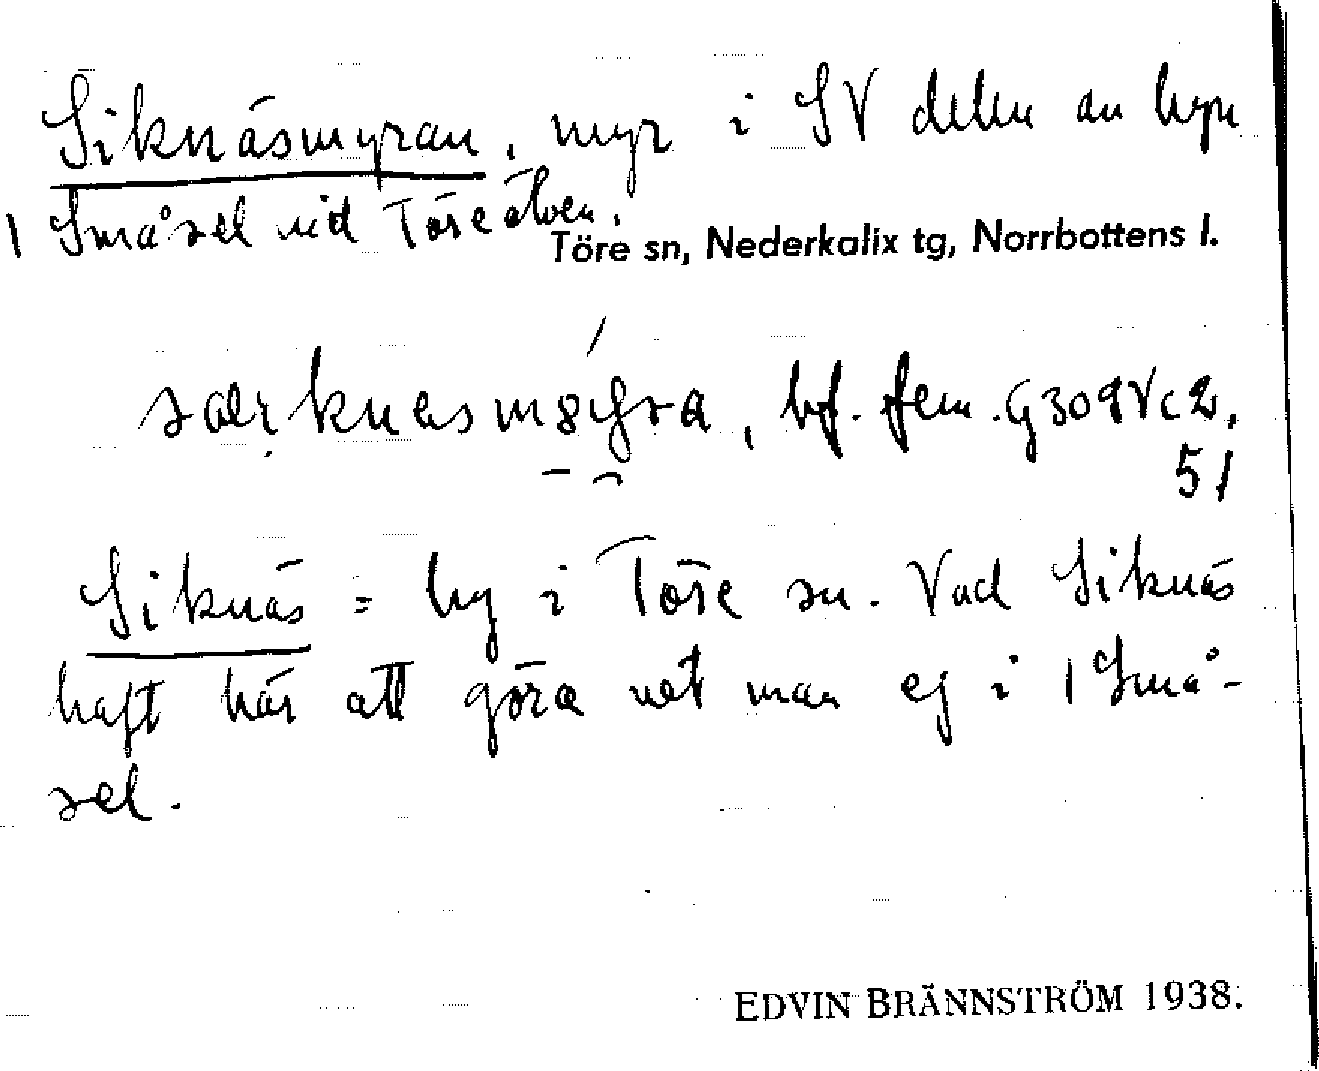 Siknäsmyran, myr i SV delen av byn
| Småsel vid Töre älven.
Töre sn, Nederkalix tg, Norrbottens l.
bf. fem. G309Vc2,
51
Siknäs = by i Töre sn. Vad Siknäs
haft här att göra vet man ej i | Små-
sel.
EDVIN BRÄNNSTRÖM 1938.